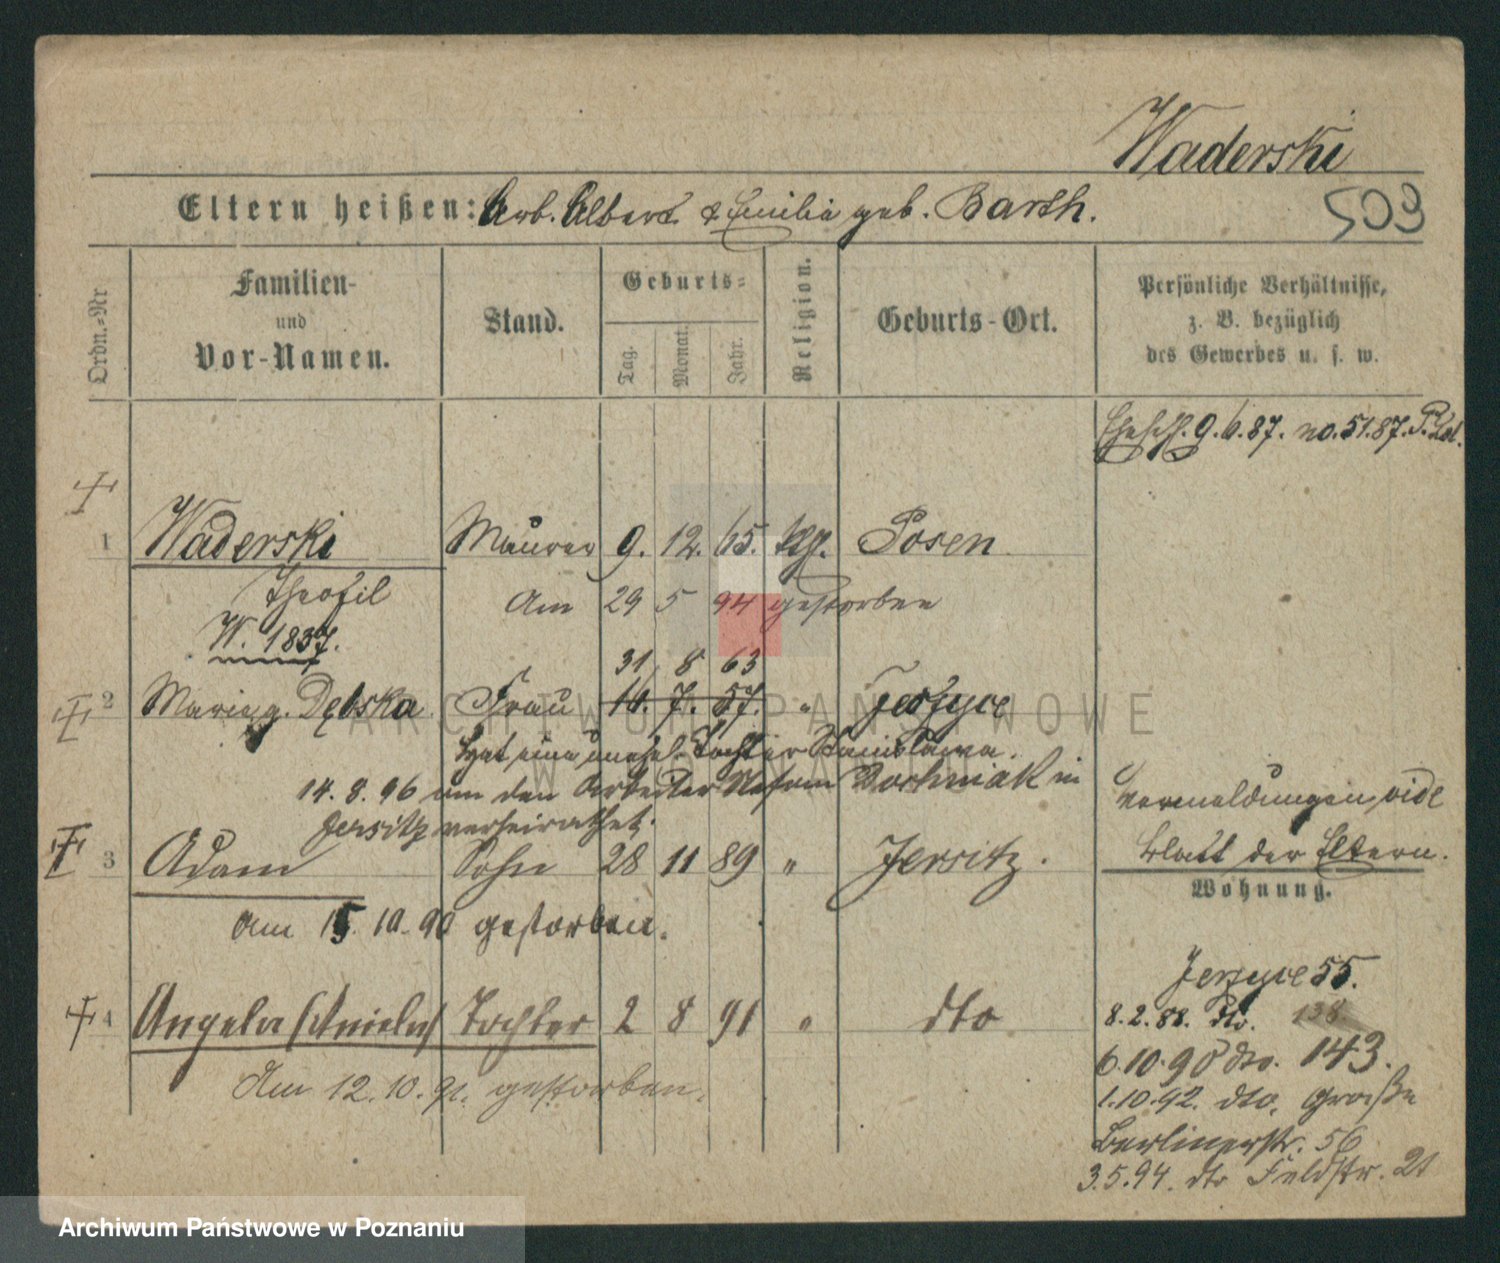 Waderski
509
Eltern heißen: Arb. Albert & Emilia geb. Barth.
Ordn.-Nr
Familien-
und
Vor-Namen.
Stand.
Geburts-
Tag.
Monat.
Jahr.
Religion.
Geburts-Ort.
Persönliche Verhältnisse,
z. B. bezüglich
des Gewerbes u. s. w.
9.6.87. no. 51.87.
1 Waderski Maurer 9. 12. 65. Posen
Theofil Am 29 5 94 gestorben
W. 1837.
31 8 63
2 Maria g. Dębska Frau 16. 7. 57. " Jersyce
Hat eine unehel. Tochter Stanislawa.
14. 8. 96 um den Arbeiter Woschniak in
Jersitz verheirathet.
Vermeldungen vide
Blatt der Eltern.
3 Adam Sohn 28 11 89 " Jersitz.
Am 15. 10. 90 gestorben.
Wohnung.
Jersyce 55.
4 Angela (Aniela) Tochter 2 8 91 " dto
Am 12. 10. 91. gestorben.
8. 2. 88. dto. 138
6. 10. 90 dto. 143.
1. 10. 92. dto. Große
Berlinerstr. 56
3. 5. 94. dto Feldstr. 21
ARCHIWUM PAŃSTWOWE
W POZNANIU
Archiwum Państwowe w Poznaniu